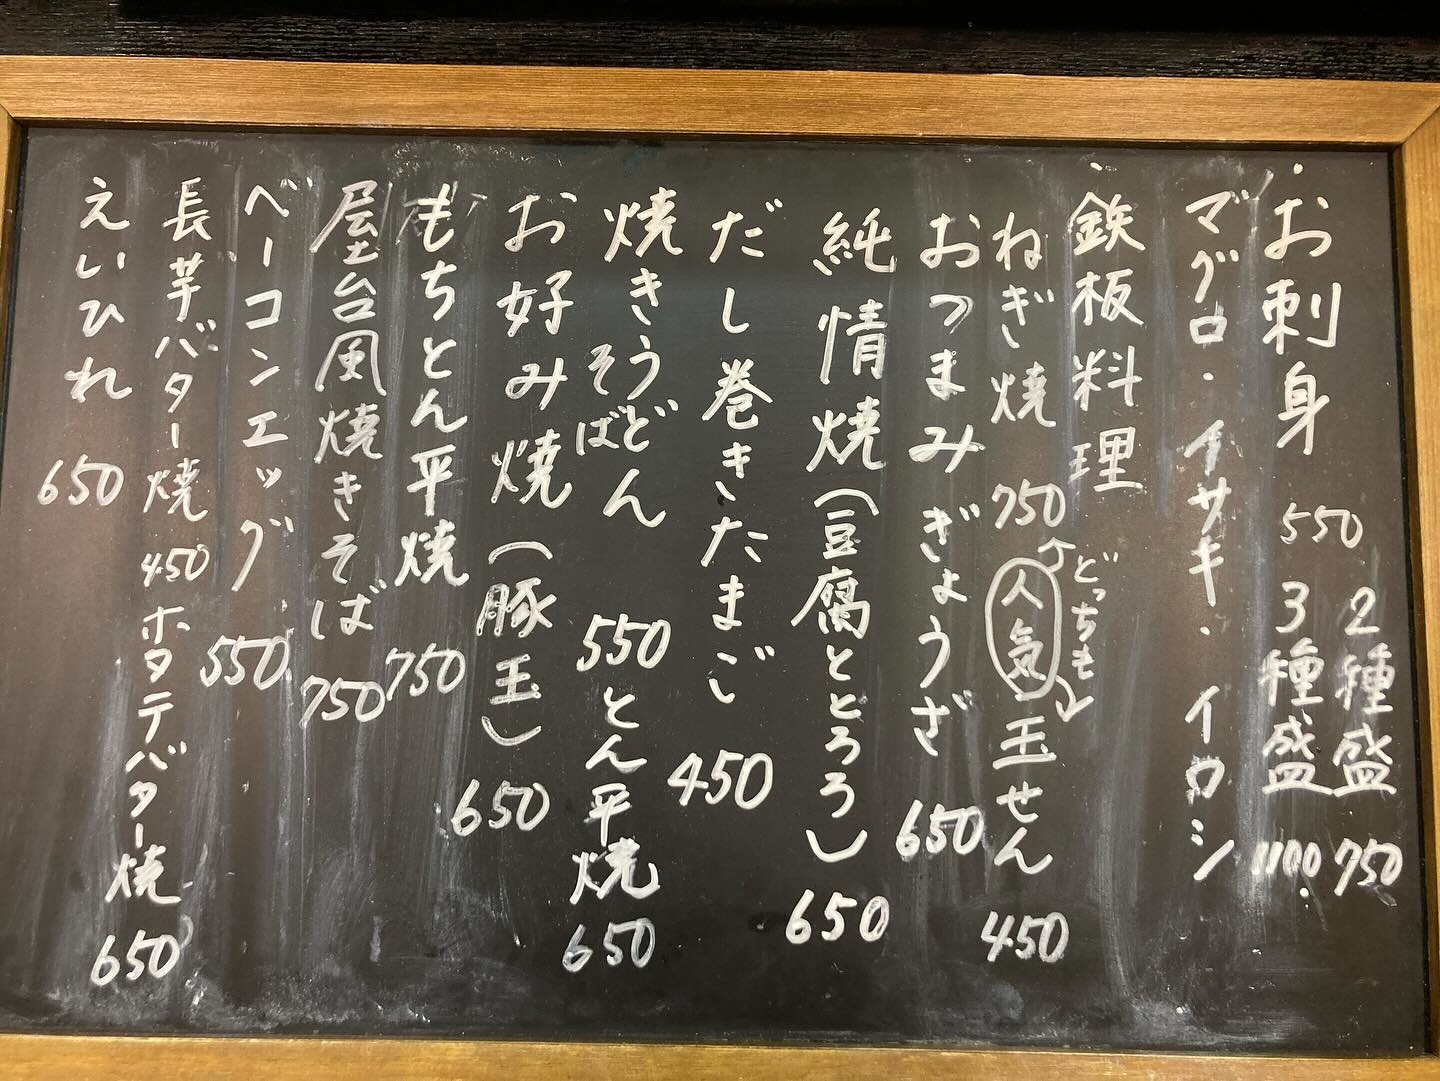 ・お刺身 550 2種盛 750
3種盛 1100
マグロ・イサキ・イワシ
・鉄板料理
ねぎ焼 750 人気 どっちも 玉せん 450
おつまみぎょうざ 650
純情焼(豆腐ととろろ) 650
だし巻きたまご 450
焼きうどん そば 550 とん平焼 650
お好み焼(豚玉) 650
もちとん平焼 750
屋台風焼きそば 750
ベーコンエッグ 550
長芋バター焼 450 ホタテバター焼 650
えいひれ 650